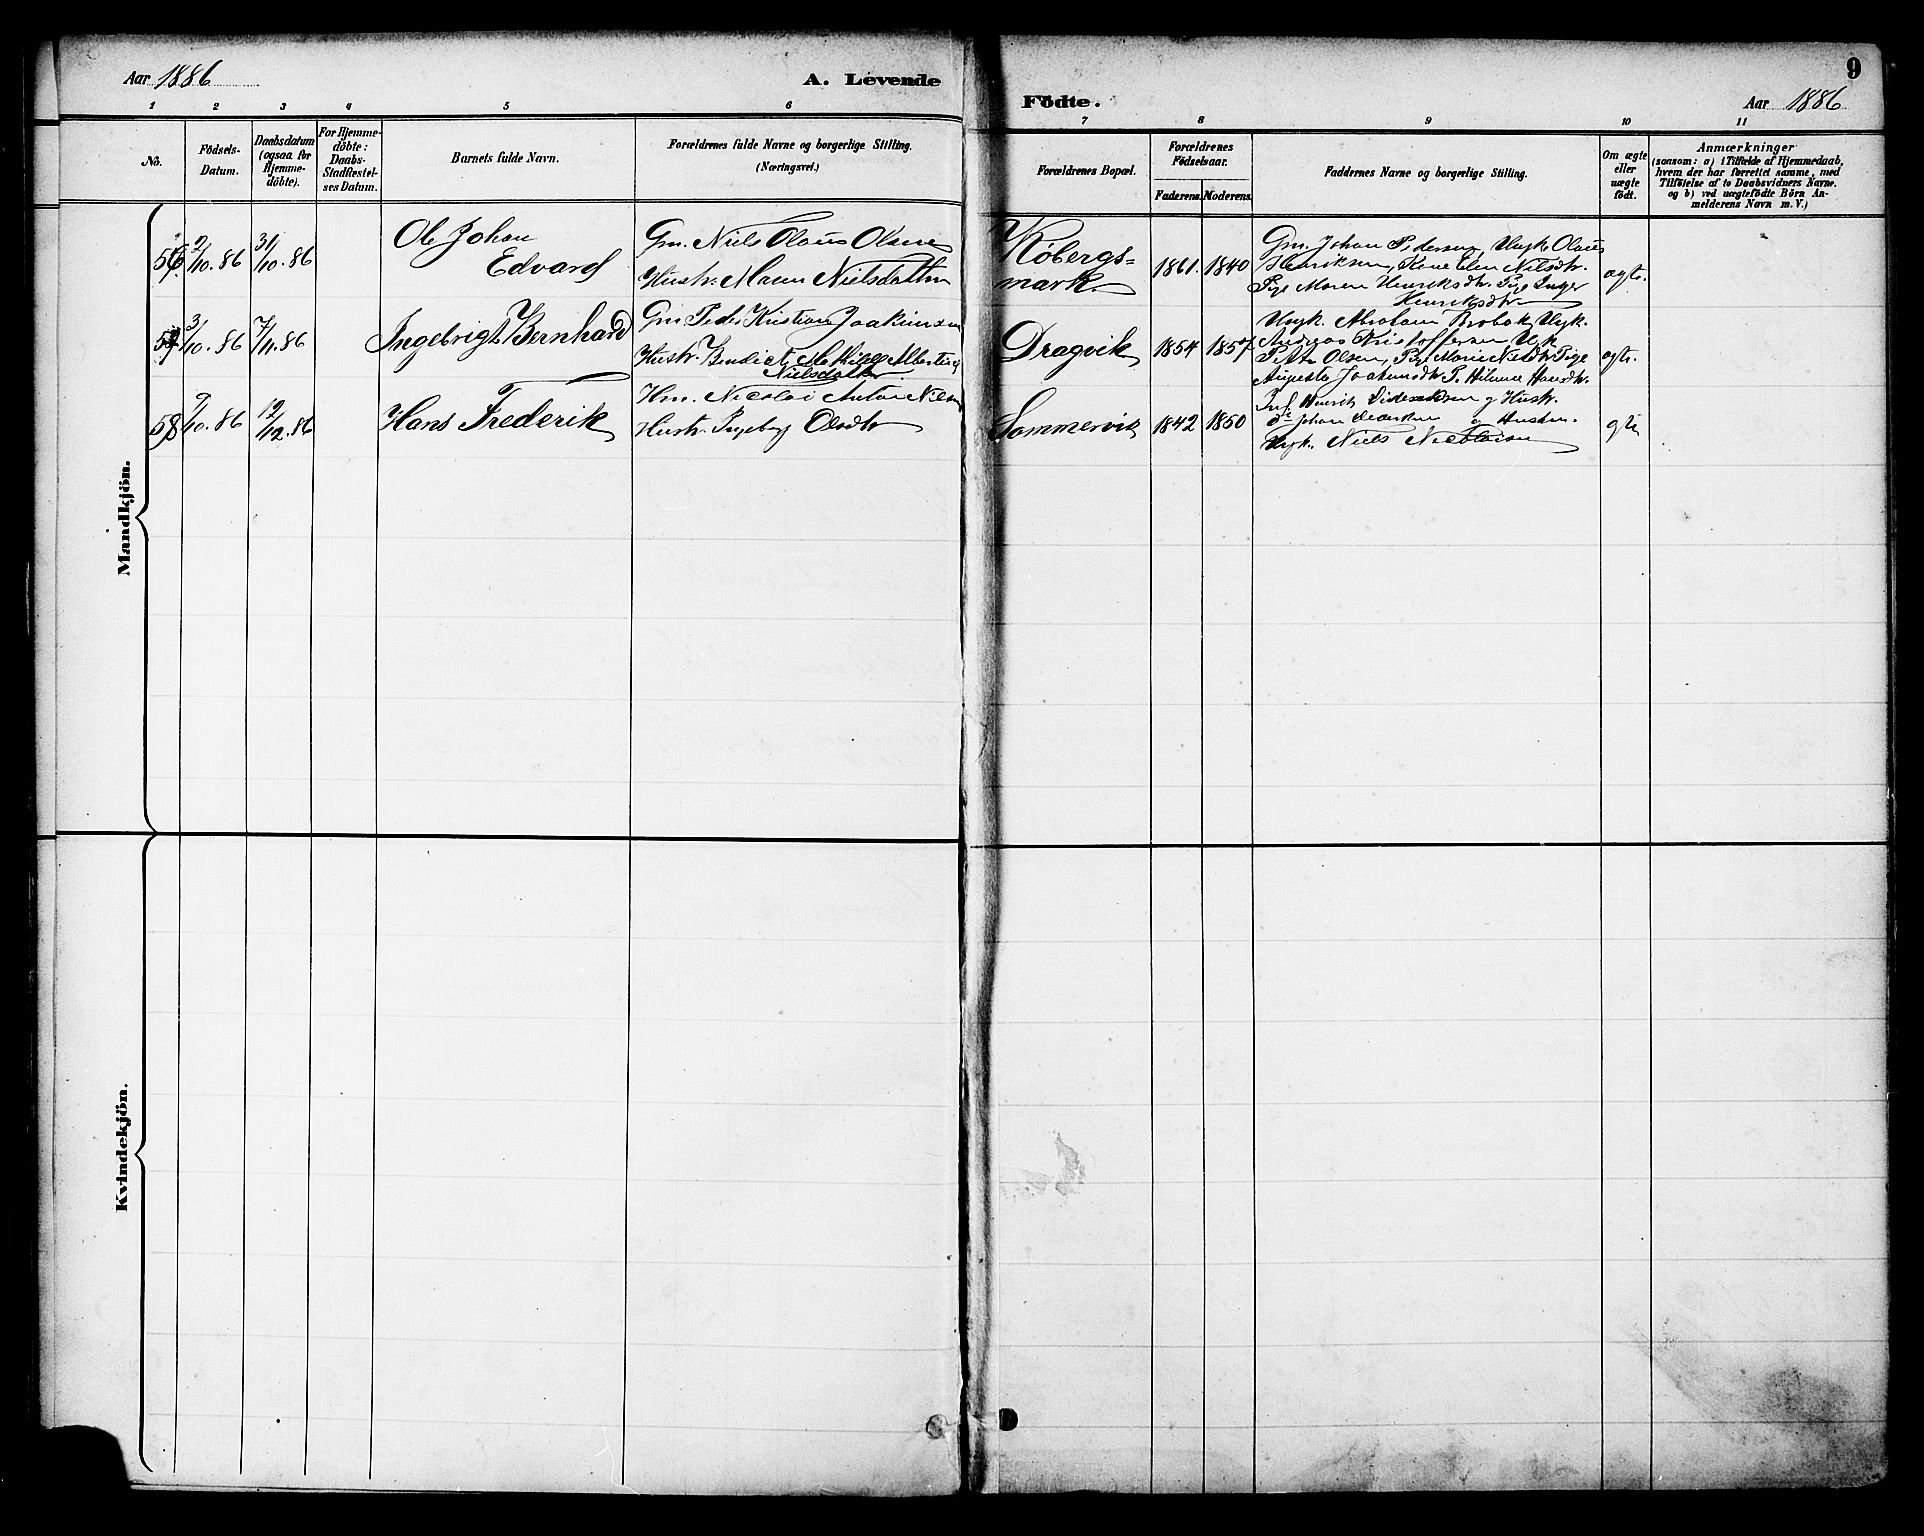 Aar 1886
A. Levende
Födte.
Aar 1886
9
1 2 3 4 5 6 7 8 9 10 11
No.
Födsels-
Datum.
Daabsdatum
(ogsaa for
Hjemme-
döbte).
For Hjemme-
döbte:
Daabs-
Stadfæstel-
ses Datum.
Barnets fulde Navn.
Forældrenes fulde Navne og borgerlige Stilling.
(Næringsvei.)
Forældrenes Bopæl.
Forældrenes
Födselsaar.
Faderens. Moderens.
Faddernes Navne og borgerlige Stilling.
Om ægte
eller
uægte
födt.
Anmærkninger
(saasom: a) i Tilfælde af Hjemmedaab,
hvem der har forrettet samme, med
Tilföielse af to Daabsvidners Navne.
og b) ved uægtefödte Börn An-
melderens Navn m. V.)
Mandkjön.
56. 2/10.86 31/10.86
Ole Johan
Edvard
Gm. Niels Olaus Olsen
Hustr. Maren Nielsdatter
Kobergs=
mark.
1861. 1840
Gm. Johan Pedersen, Ungk. Olaus
Henriksen, Kone Elen Nilsdtr.
Pige Maren Henriksdtr. Pige Inger
Henriksdtr
ægte.
57 3/10.86 7/11.86
Ingebrigt Bernhard
Gm. Peder Kristian Joakimsen
Hustr. Bendict Albertine
Nielsdatter
Dragvik
1854 1857
Ungk. Abraham Brobak, Ungk.
Andreas Kristoffersen Ugk
Olsen, Pige Marie Nilsdtr. Pige
Augusta Joakimsdtr. P. Hilmine Hansdtr.
ægte.
58 9/10.86 12/12.86
Hans Frederik
Hm. Nicolai Anton Nilsen
Hustr. Ingeborg Olsdtr
Sommervik
1842 1850
Henrik og Hustr.
Johan og Hustru.
Ungk. Niels Nicolaisen
Kvindekjön.